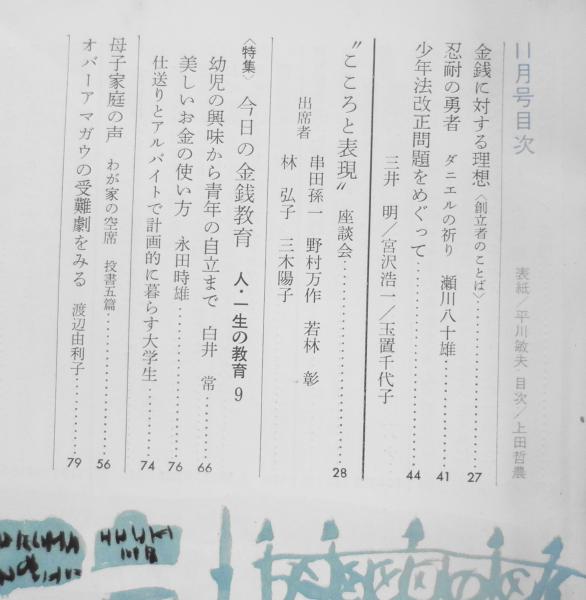 11月号目次
表紙/平川敏夫 目次/上田哲農
金銭に対する理想〈創立者のことば〉……27
忍耐の勇者 ダニエルの祈り 瀬川八十雄……41
少年法改正問題をめぐって……44
三井 明/宮沢浩一/玉置千代子
"こころと表現" 座談会……28
出席者 串田孫一 野村万作 若林 彰
林 弘子 三木陽子
〈特集〉 今日の金銭教育 人・一生の教育 9
幼児の興味から青年の自立まで 白井 常……66
美しいお金の使い方 永田時雄……76
仕送りとアルバイトで計画的に暮らす大学生……74
母子家庭の声 わが家の空席 投書五篇……56
オバーアマガウの受難劇をみる 渡辺由利子……79